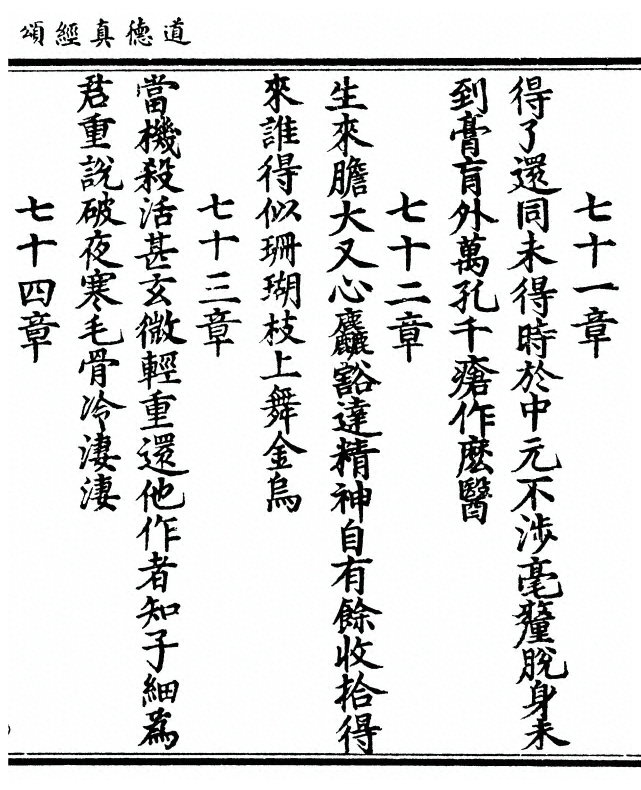 道德真經頌
七十一章
得了還同未得時於中元不涉毫釐脫身未
到膏肓外萬孔千瘡作麽醫
七十二章
生來膽大又心麤豁達精神自有餘收拾得
來誰得似珊瑚枝上舞金烏
七十三章
當機殺活甚玄微輕重還他作者知子細爲
君重說破夜寒毛骨冷淒淒
七十四章